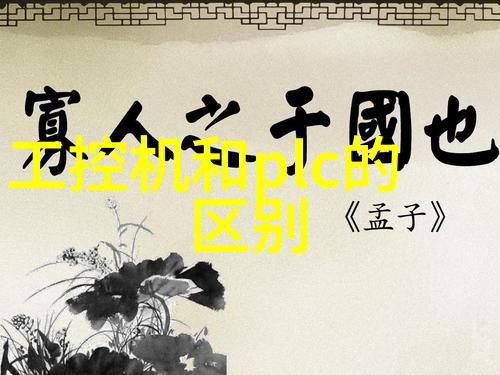 寡人之于國也
工控机和plc的
区别
《孟子》